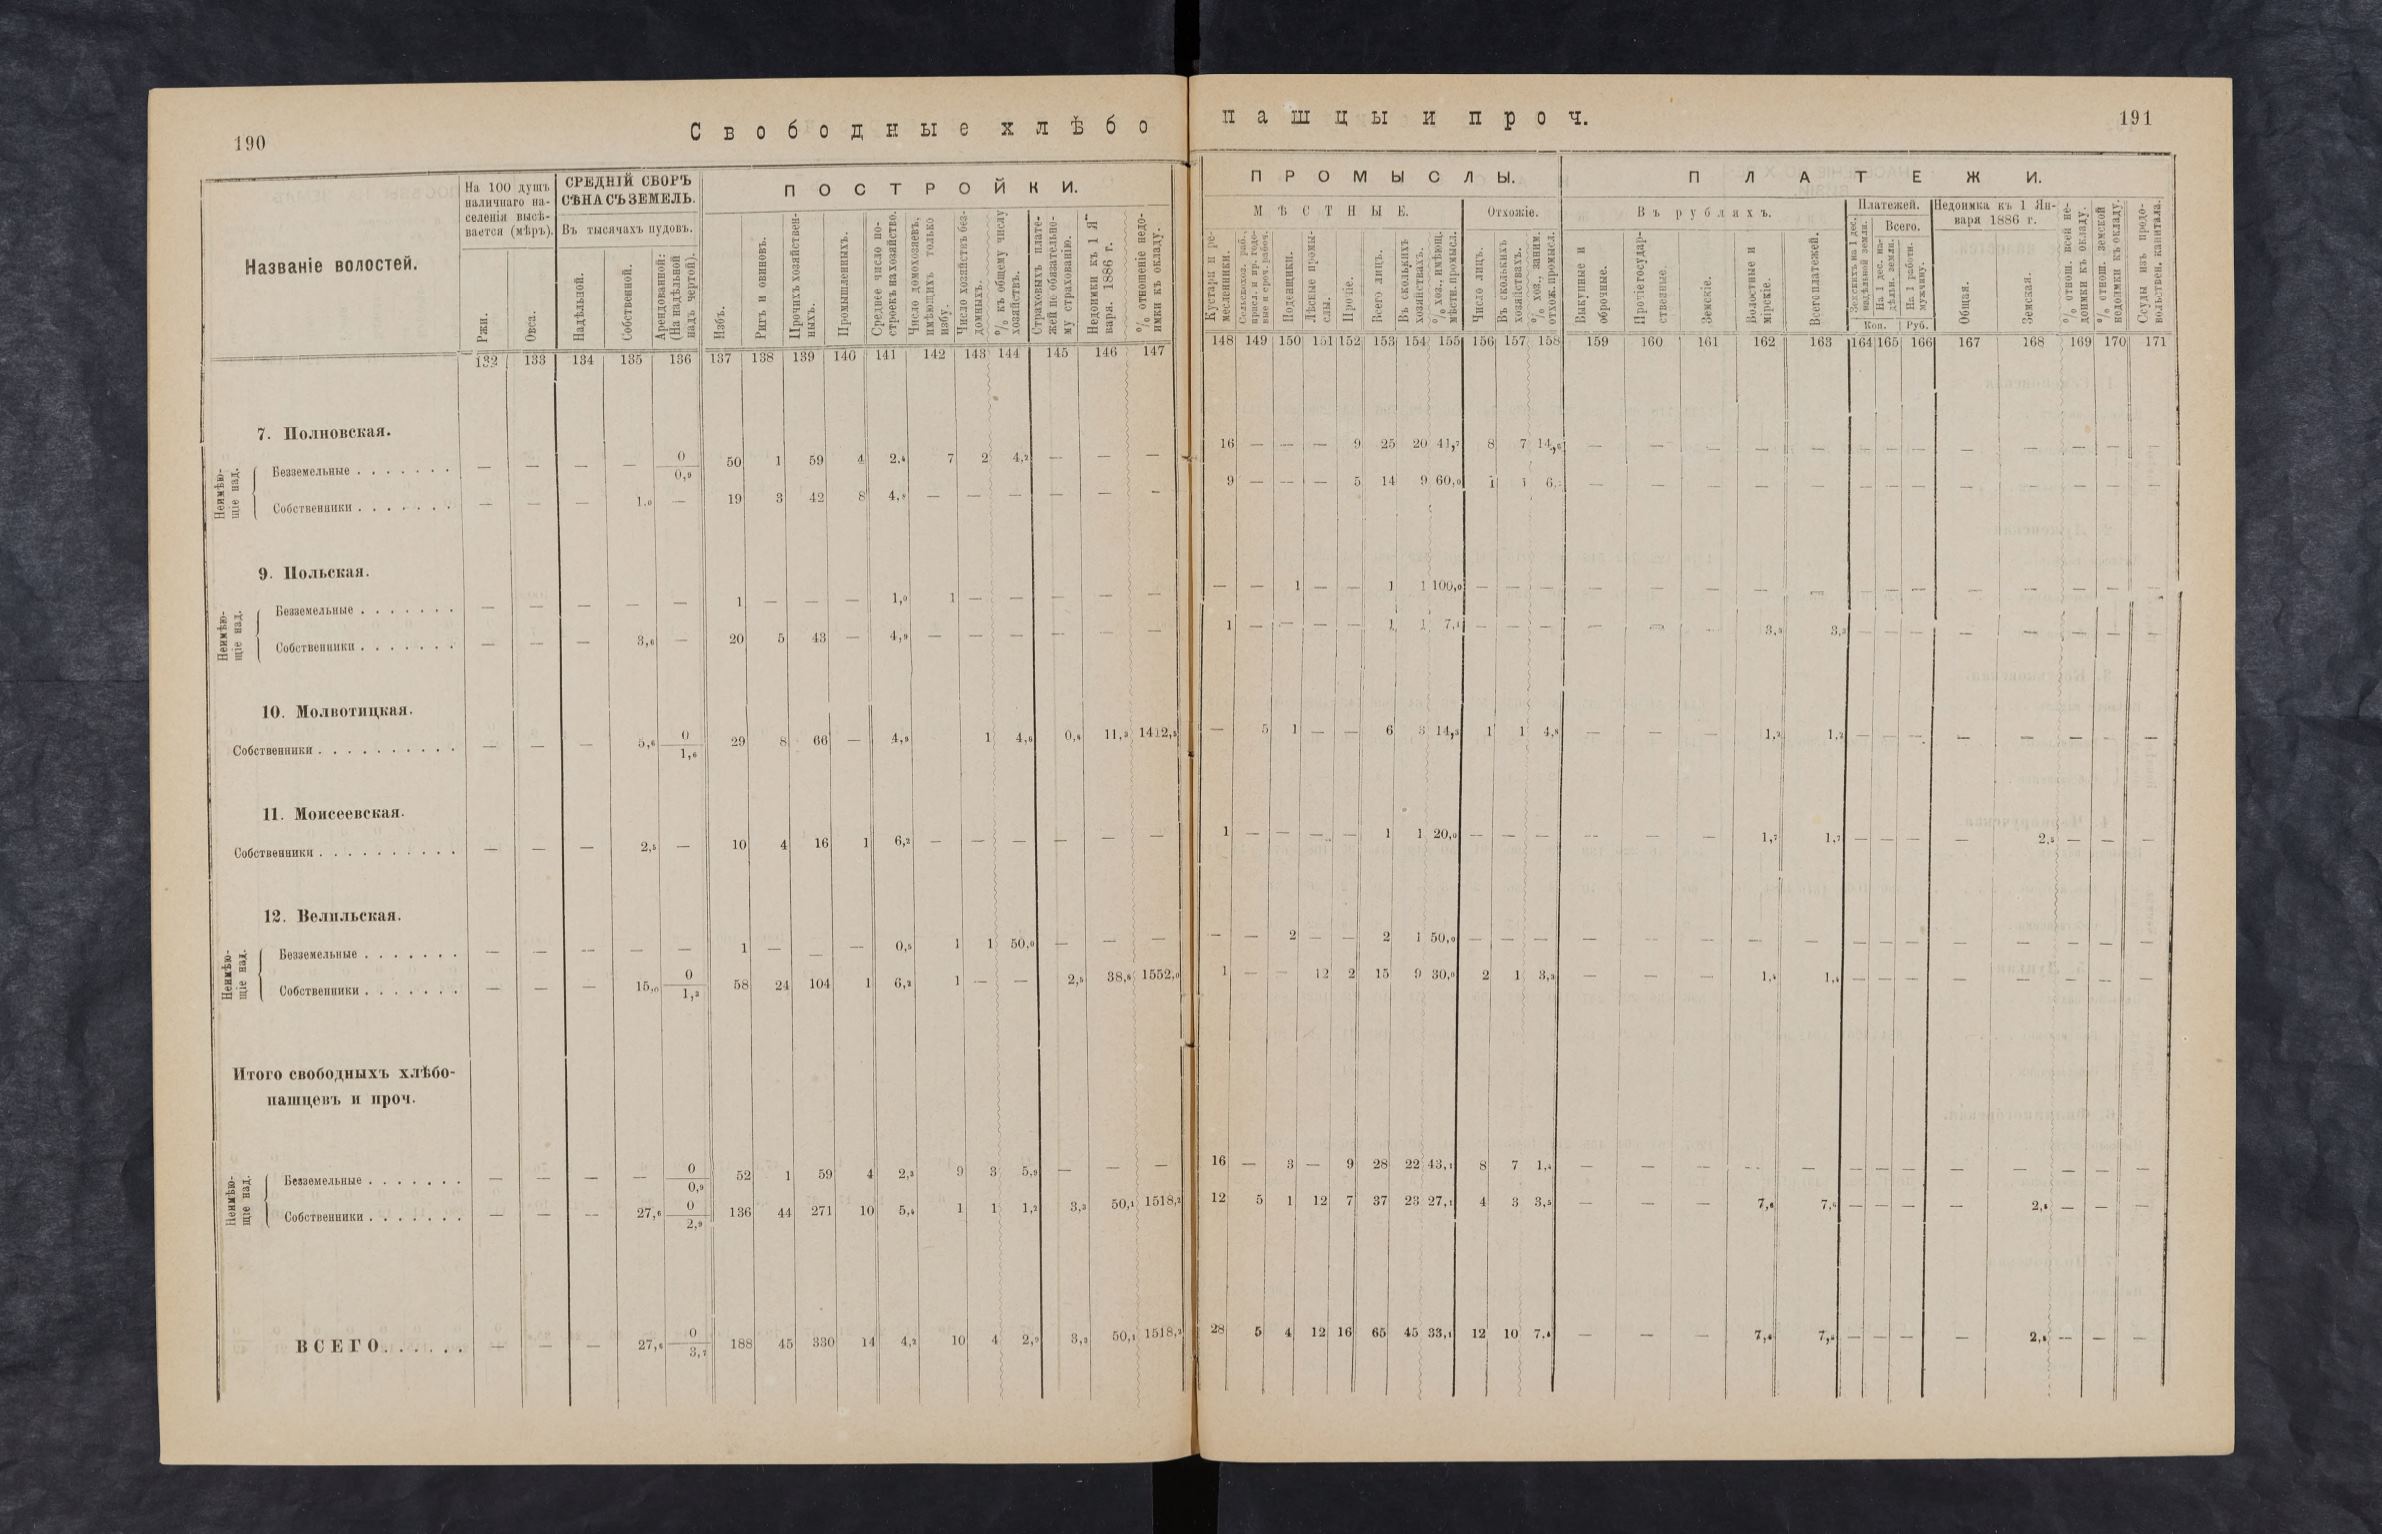 190
Свободные хлѣбо
Названіе волостей.
На 100 душъ
наличнаго на-
селенія высѣ-
вается (мѣръ).
СРЕДНІЙ СБОРЪ
СѢНА СЪ ЗЕМЕЛЬ.
Въ тысячахъ пудовъ.
ПОСТРОЙКИ.
Ржи.
Овса.
Надѣльной.
Собственной.
Арендованной:
(На надѣльной
надъ чертой).
Избъ.
Ригъ и овиновъ.
Прочихъ хозяйствен-
ныхъ.
Промышленныхъ.
Среднее число по-
строекъ на хозяйство.
Число домохозяевъ,
имѣющихъ только
избу.
Число хозяйствъ без-
домныхъ.
% къ общему числу
хозяйствъ.
Страховыхъ плате-
жей по обязательно-
му страхованію.
Недоимки къ 1 Я-
варя. 1886 г.
% отношеніе недо-
имки къ окладу.
132 133 134 135 136 137 138 139 140 141 142 143 144 145 146 147
7. Полновская.
Неимѣю-
щіе над.
Безземельные . . . . . . . — — — — 0/0,9 50 1 59 4 2,4 7 2 4,2 — — —
Собственники . . . . . . . — — — 1,0 — 19 3 42 8 4,8 — — — — — —
9. Польская.
Неимѣю-
щіе над.
Безземельные . . . . . . . — — — — — 1 — — — 1,0 1 — — — — —
Собственники . . . . . . . — — — 3,6 — 20 5 43 — 4,9 — — — — — —
10. Молвотицкая.
Собственники . . . . . . . . . . — — — 5,6 0/1,6 29 8 66 — 4,9 1 4,6 0,8 11,3 1412,5
11. Моисеевская.
Собственники . . . . . . . . . . — — — 2,5 — 10 4 16 1 6,2 — — — — — —
12. Велильская.
Неимѣю-
щіе над.
Безземельные . . . . . . . — — — — — 1 — — — 0,5 1 1 50,0 — — —
Собственники . . . . . . . — — — 15,0 0/1,3 58 24 104 1 6,2 1 — — 2,5 38,8 1552,0
Итого свободныхъ хлѣбо-
пашцевъ и проч.
Неимѣю-
щіе над.
Безземельные . . . . . . . — — — — 0/0,9 52 1 59 4 2,3 9 3 5,9 — — —
Собственники . . . . . . . — — — 27,6 0/2,9 136 44 271 10 5,4 1 1 1,2 3,3 50,1 1518,2
ВСЕГО . . . . . . — — — 27,6 0/3,7 188 45 330 14 4,2 10 4 2,9 3,3 50,1 1518,2
пашцы и проч.
191
ПРОМЫСЛЫ.
ПЛАТЕЖИ.
МѢСТНЫЕ.
Отхожіе.
Въ рубляхъ.
Платежей.
Всего.
Недоимка къ 1 Ян-
варя 1886 г.
Кустари и ре-
месленники.
Сельскохоз. раб.,
присл. и пр. годо-
вые и сроч. рабоч.
Поденщики.
Лѣсные промы-
слы.
Прочіе.
Всего лицъ.
Въ сколькихъ
хозяйствахъ.
% хоз., имѣющ.
мѣстн. промысл.
Число лицъ.
Въ сколькихъ
хозяйствахъ.
% хоз., заним.
отхож. промысл.
Выкупные и
оброчные.
Прочіе государ-
ственные.
Земскіе.
Волостные и
мірскіе.
Всего платежей.
Земскихъ на 1 дес.
надѣльной земли.
На 1 дес. на-
дѣльн. земли.
На 1 работн.
мужчину.
Коп.
Руб.
Общая.
Земская.
% отнош. всей не-
доимки къ окладу.
% отнош. земской
недоимки къ окладу.
Ссуды изъ продо-
вольствен. капитала.
148 149 150 151 152 153 154 155 156 157 158 159 160 161 162 163 164 165 166 167 168 169 170 171
16 — — — 9 25 20 41,7 8 7 14,6 — — — — — — — — — — — — —
9 — — — 5 14 9 60,0 1 1 6, — — — — — — — — — — — — —
— — 1 — — 1 1 100,0 — — — — — — — — — — — — — — — —
1 — — — — 1 1 7,1 — — — — — — 3,3 3,3 — — — — — — — —
— 5 1 — — 6 3 14,3 1 1 4,8 — — — 1,2 1,2 — — — — — — — —
1 — — — — 1 1 20,0 — — — — — — 1,7 1,7 — — — — 2,5 — — —
— — 2 — — 2 1 50,0 — — — — — — — — — — — — — — — —
1 — — 12 2 15 9 30,0 2 1 3,3 — — — 1,4 1,4 — — — — — — — —
16 — 3 — 9 28 22 43,1 8 7 1,4 — — — — — — — — — — — — —
12 5 1 12 7 37 23 27,1 4 3 3,5 — — — 7,6 7,6 — — — — 2,5 — — —
28 5 4 12 16 65 45 33,1 12 10 7,4 — — — 7,6 7,6 — — — — 2,5 — — —